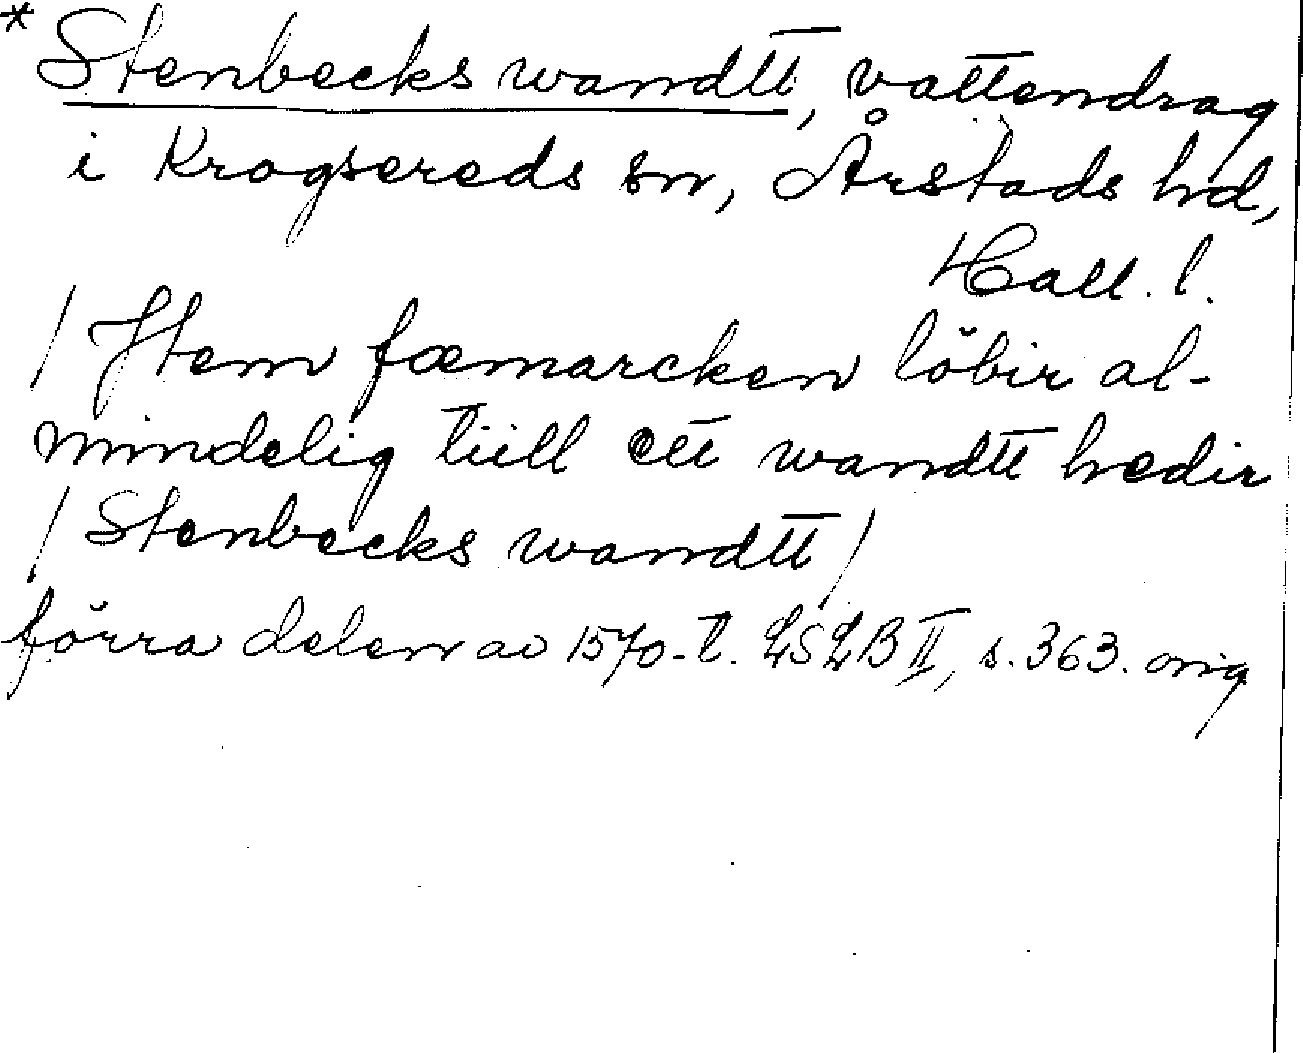 * Stenbecks wandtt, vattendrag
i Krogsereds sn, Årstads hd,
Hall. l.
/ Jtem fæmarcken löbir al-
mindelig tiill ett wandtt hedir
/ Stenbecks wandtt /
förra delen av 1570-t. LSLB II, s. 363. orig